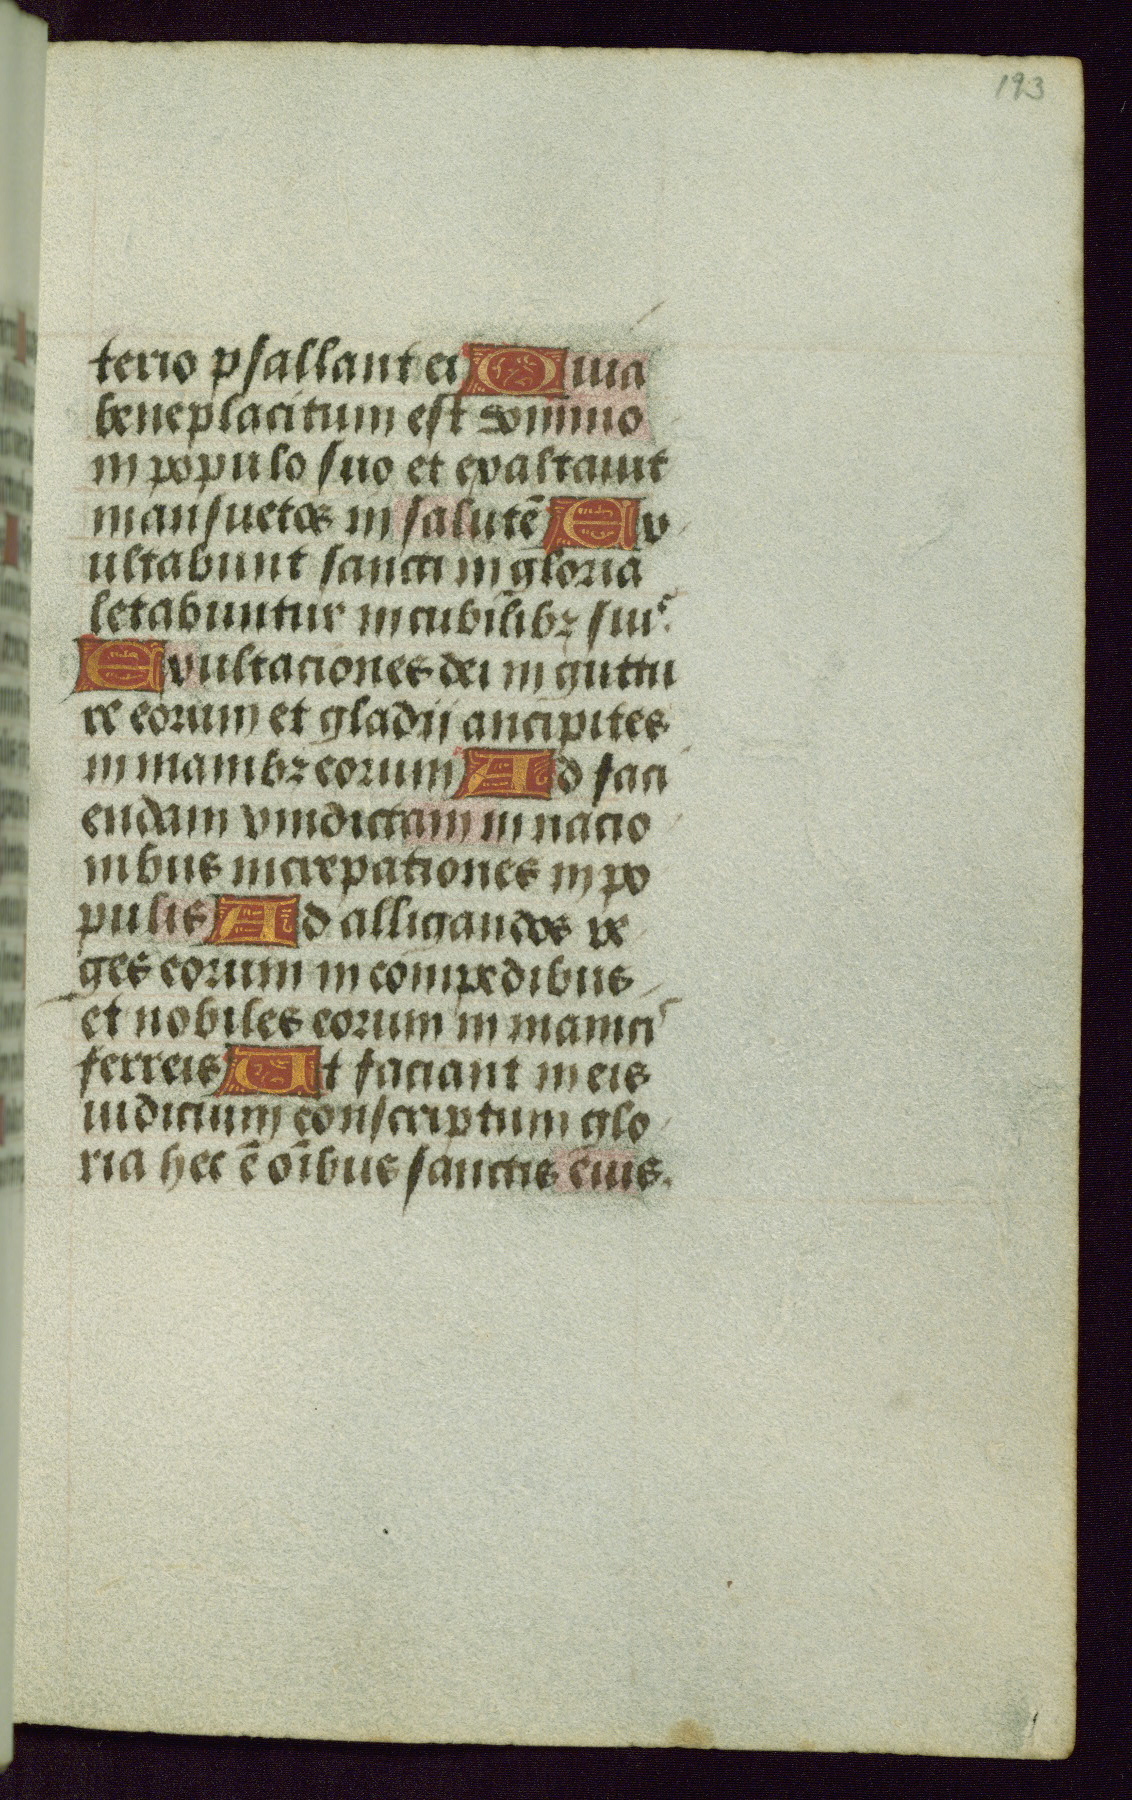 193
terio psallant ei Quia
beneplacitum est domino
in populo suo et exaltauit
mansuetos in salutē Ex
ultabunt sancti in gloria
letabuntur in cubilibꝫ suis
Exultationes dei in guttu
re eorum et gladii ancipites
in manibꝫ eorum Ad faci
endam vindictam in nacio
nibus increpationes in po
pulis Ad alligandos re
ges eorum in compedibus
et nobiles eorum in manicis
ferreis Ut faciant in eis
iudicium conscriptum glo
ria hec ē oībus sanctis eius.